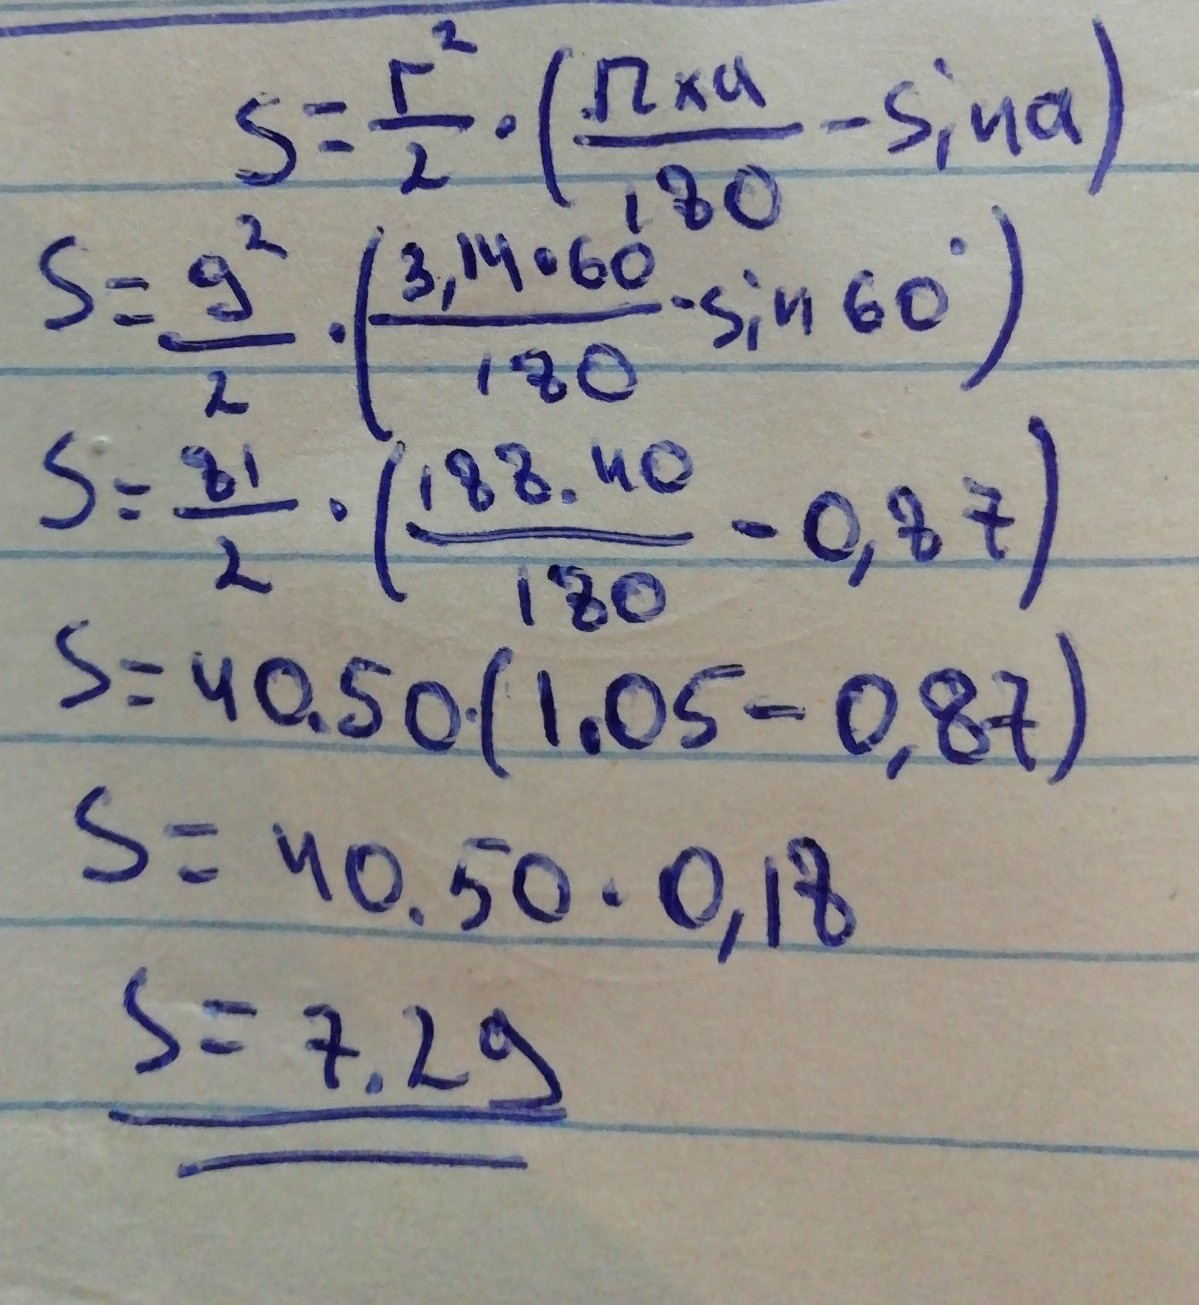 S = r²/2 · (π x a / 180 - sin a)
S = 9²/2 · (3,14 · 60 / 180 - sin 60°)
S = 81/2 · (188.40 / 180 - 0,87)
S = 40.50 · (1.05 - 0,87)
S = 40.50 · 0,18
S = 7.29